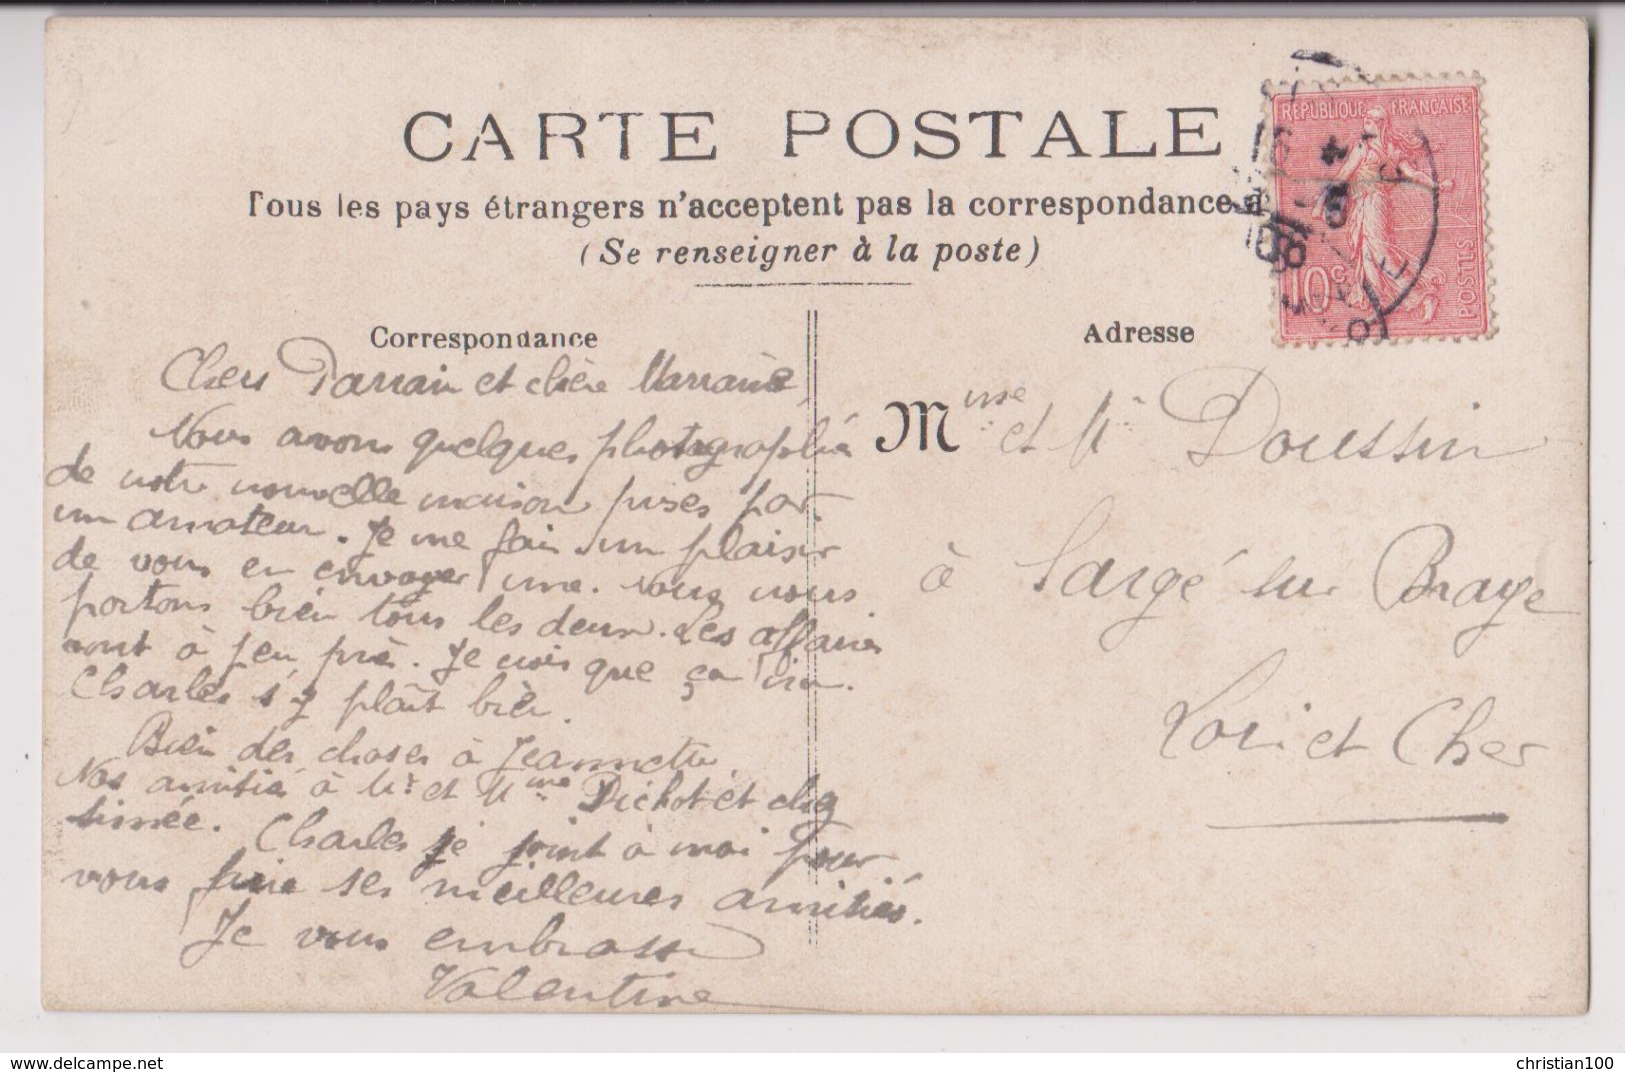 CARTE POSTALE
Tous les pays étrangers n'acceptent pas la correspondance
(Se renseigner à la poste)
Correspondance
Adresse
RÉPUBLIQUE FRANÇAISE
10c
POSTES
08
Chers Parrain et chère Marraine,
Nous avons quelques photographies
de notre nouvelle maison prises par
un amateur. Je me fais un plaisir
de vous en envoyer une. Nous nous
portons bien tous les deux. Les affaires
vont à peu près. Je crois que ça ira.
Charles s'y plaît bien.
Bien des choses à Jeannette.
Nos amitiés à Mr et Mme Pichot et
Charles se joint à moi pour
vous faire ses meilleures amitiés.
Je vous embrasse
Valentine
Mme et Mr Doussin
à Sargé sur Braye
Loir et Cher
www.delcampe.net
christian100